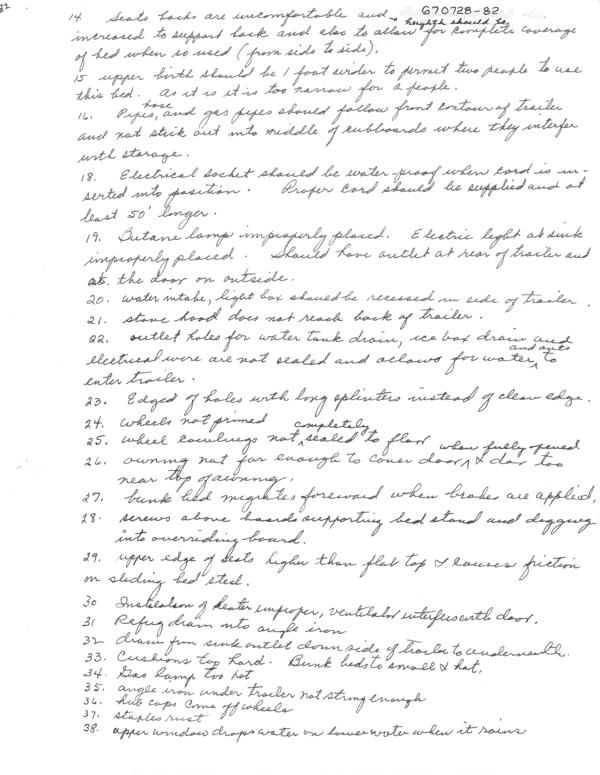 82
670728-82
14. Seats backs are uncomfortable and heighth should be
increased to support back and also to allow for complete coverage
of bed when so used (from side to side).
15 upper birth should be 1 foot wider to permit two people to use
this bed. As it is it is too narrow for 2 people.
16. Pipes, hose and gas pipes should follow front contour of trailer
and not stick out into middle of cubboards where they interfer
with storage.
18. Electrical socket should be water-proof when cord is in-
serted into position. Proper cord should be supplied and at
least 50' longer.
19. Butane lamp improperly placed. Electric light at sink
improperly placed. Should have outlet at rear of trailer and
at the door on outside.
20. water intake, light box should be recessed in side of trailer.
21. stove hood does not reach back of trailer.
22. outlet holes for water tank drain, ice box drain and
electrical wire are not sealed and allows for water and ants to
enter trailer.
23. Edged of holes with long splinters instead of clean edge.
24. wheels not primed
25. wheel cowlings not completely sealed to floor
26. awning not far enough to cover door when fully opened & door too
near top of awning.
27. bunk bed migrates foreward when brakes are applied.
28. screws above boards supporting bed stand and digging
into overriding board.
29. upper edge of seats higher than flat top & causes friction
on sliding bed steel.
30 Instalation of heater improper, ventilator interfers with door.
31 Refrig drain into angle iron
32 drain from sink outlet down side of trailer to underneath.
33. Cushions too hard. Bunk beds to small & hot.
34. Gas lamp too hot
35. angle iron under trailer not strong enough
36. hub caps come off wheels
37. staples rust
38. upper window drops water on lower water when it rains